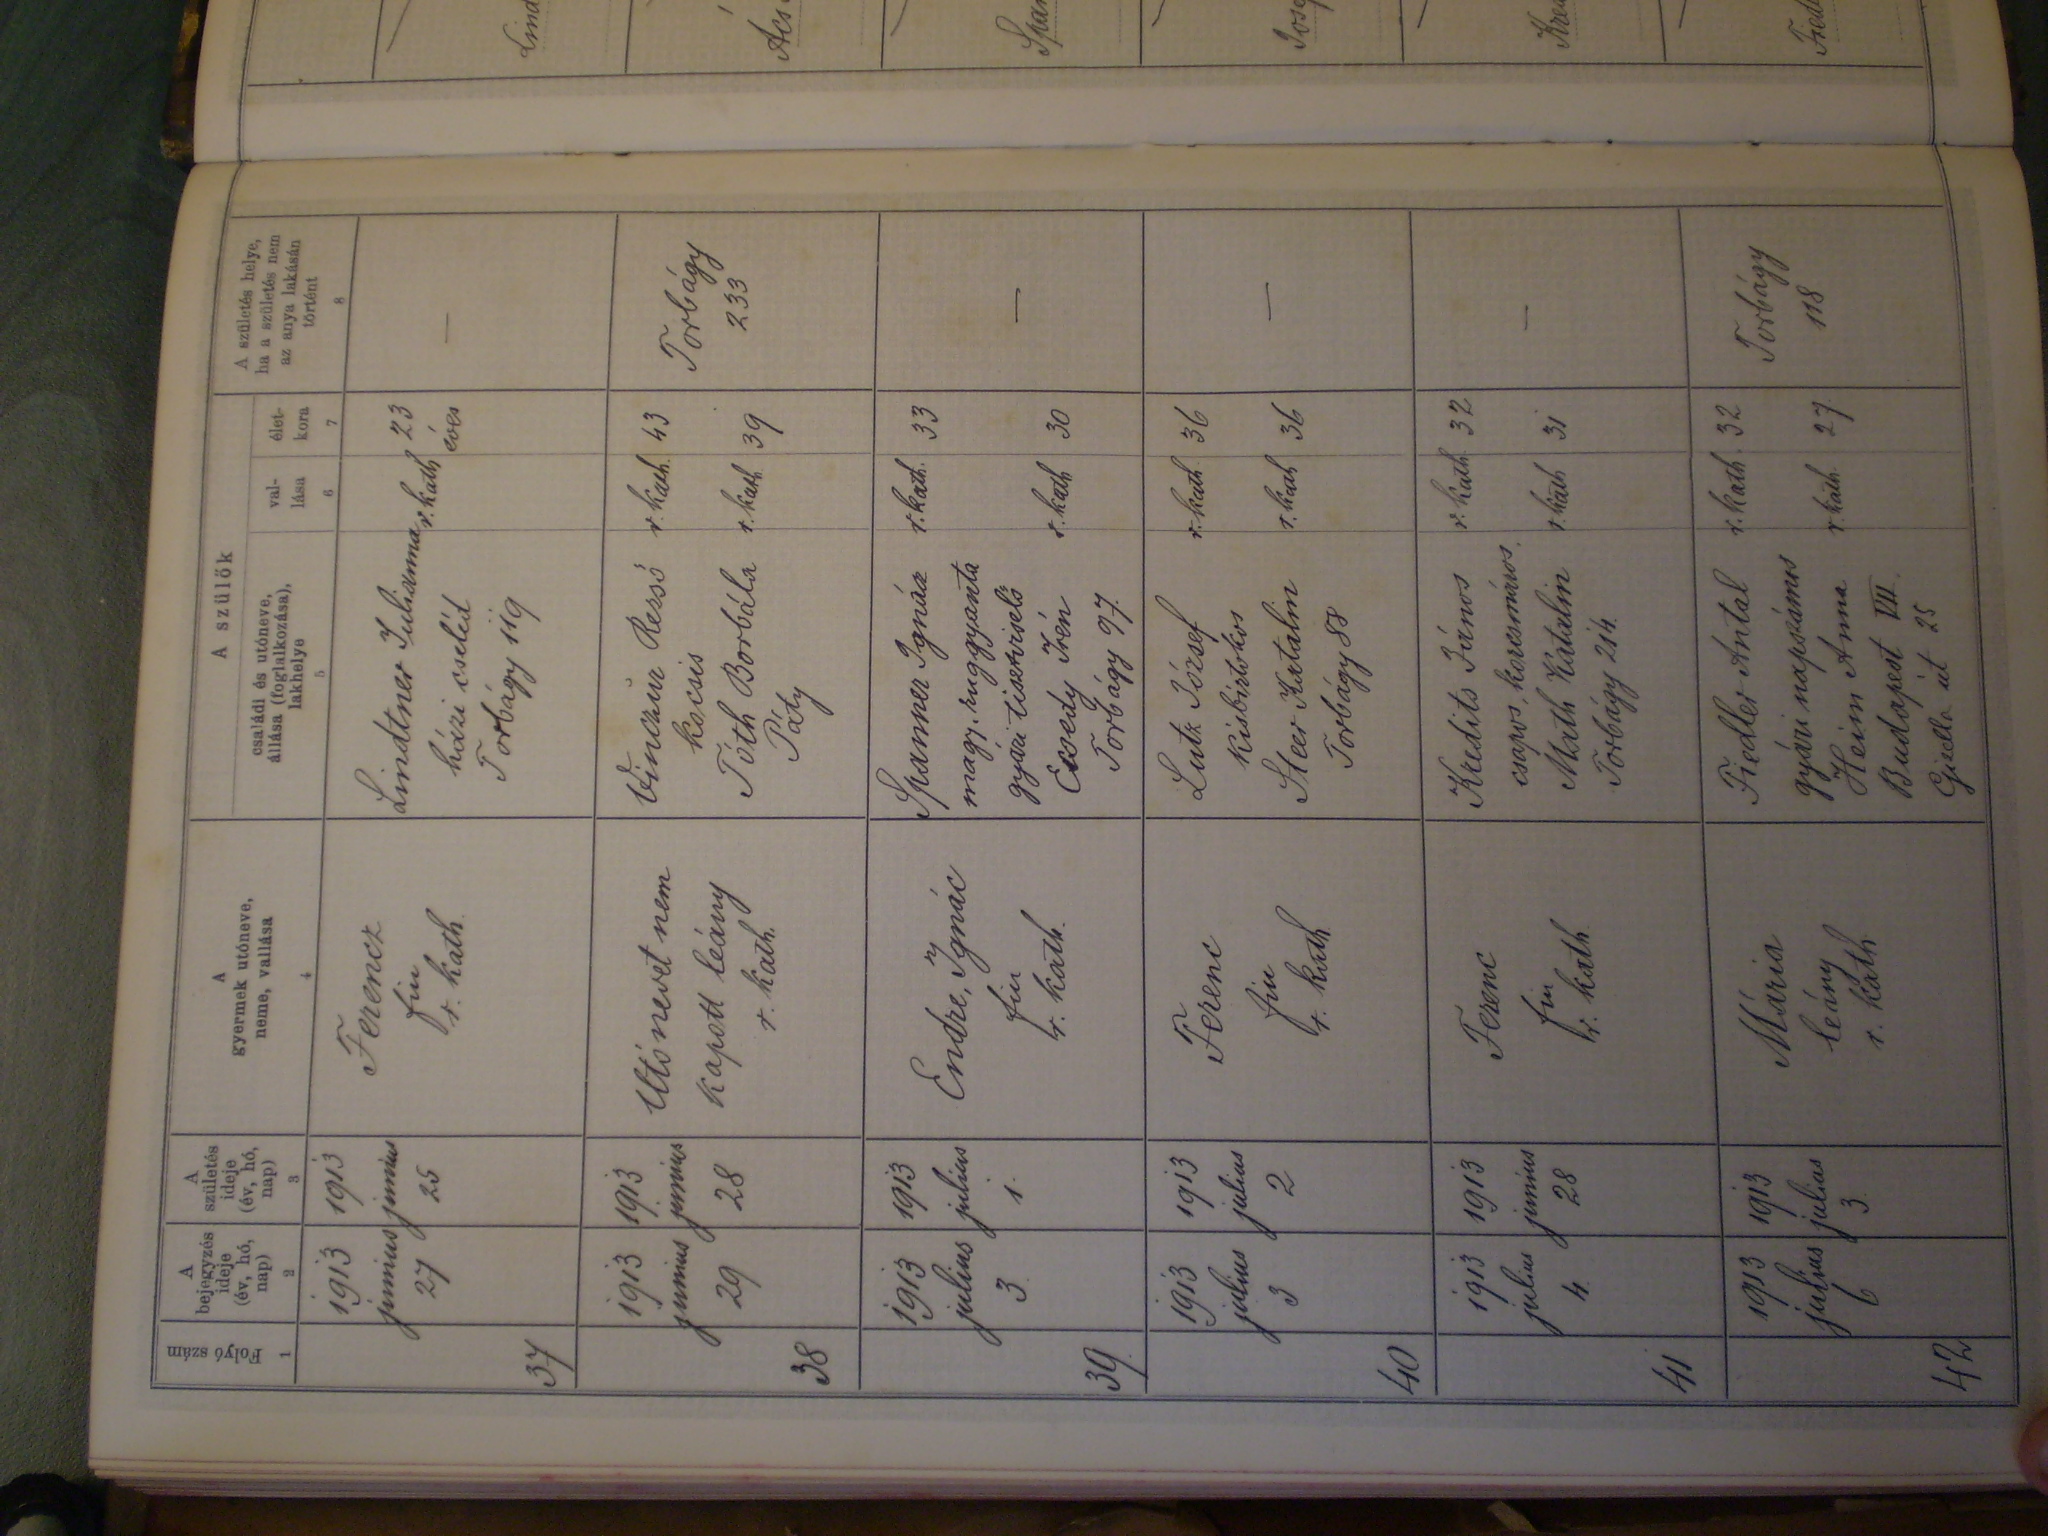 A szülők
Folyó szám
A
bejegyzés
ideje
(év, hó,
nap)
A
születés
ideje
(év, hó,
nap)
A
gyermek utóneve,
neme, vallása
családi és utóneve,
állása (foglalkozása),
lakhelye
val-
lása
élet-
kora
A születés helye,
ha a születés nem
az anya lakásán
történt
1
2
3
4
5
6
7
8
37
1913
junius
27
1913
junius
25
Ferencz
fiu
r. kath.
Lindtner Julianna
házi cseléd
Torbágy 119
r. kath
23
éves
—
38
1913
junius
29
1913
junius
28
Utónevet nem
kapott leány
r. kath.
Vinczúr Rezső
kocsis
Tóth Borbála
Páty
r. kath.
43
r. kath.
39
Torbágy
233
39.
1913
julius
3.
1913
julius
1.
Endre, Ignác
fiu
r. kath.
Spanner Ignác
magy. ruggyanta
gyári tisztviselő
Ecsedy Irén
Torbágy 97.
r. kath.
33
r. kath
30
—
40
1913
julius
3
1913
julius
2
Ferenc
fiu
r. kath
Lutz József
kisbirtokos
Steer Katalin
Torbágy 88
r. kath
36
r. kath
36
—
41
1913
julius
4.
1913
junius
28
Ferenc
fiu
r. kath.
Kredits János
csapos, korcsmáros.
Math Katalin
Torbágy 214.
r. kath.
32
r. kath
31
—
42
1913
julius
6
1913
julius
3.
Mária
leány
r. kath
Fiedler Antal
gyári napszámos
Heim Anna
Budapest VII.
Gizella út 25
r. kath.
32
r. kath.
27.
Torbágy
118